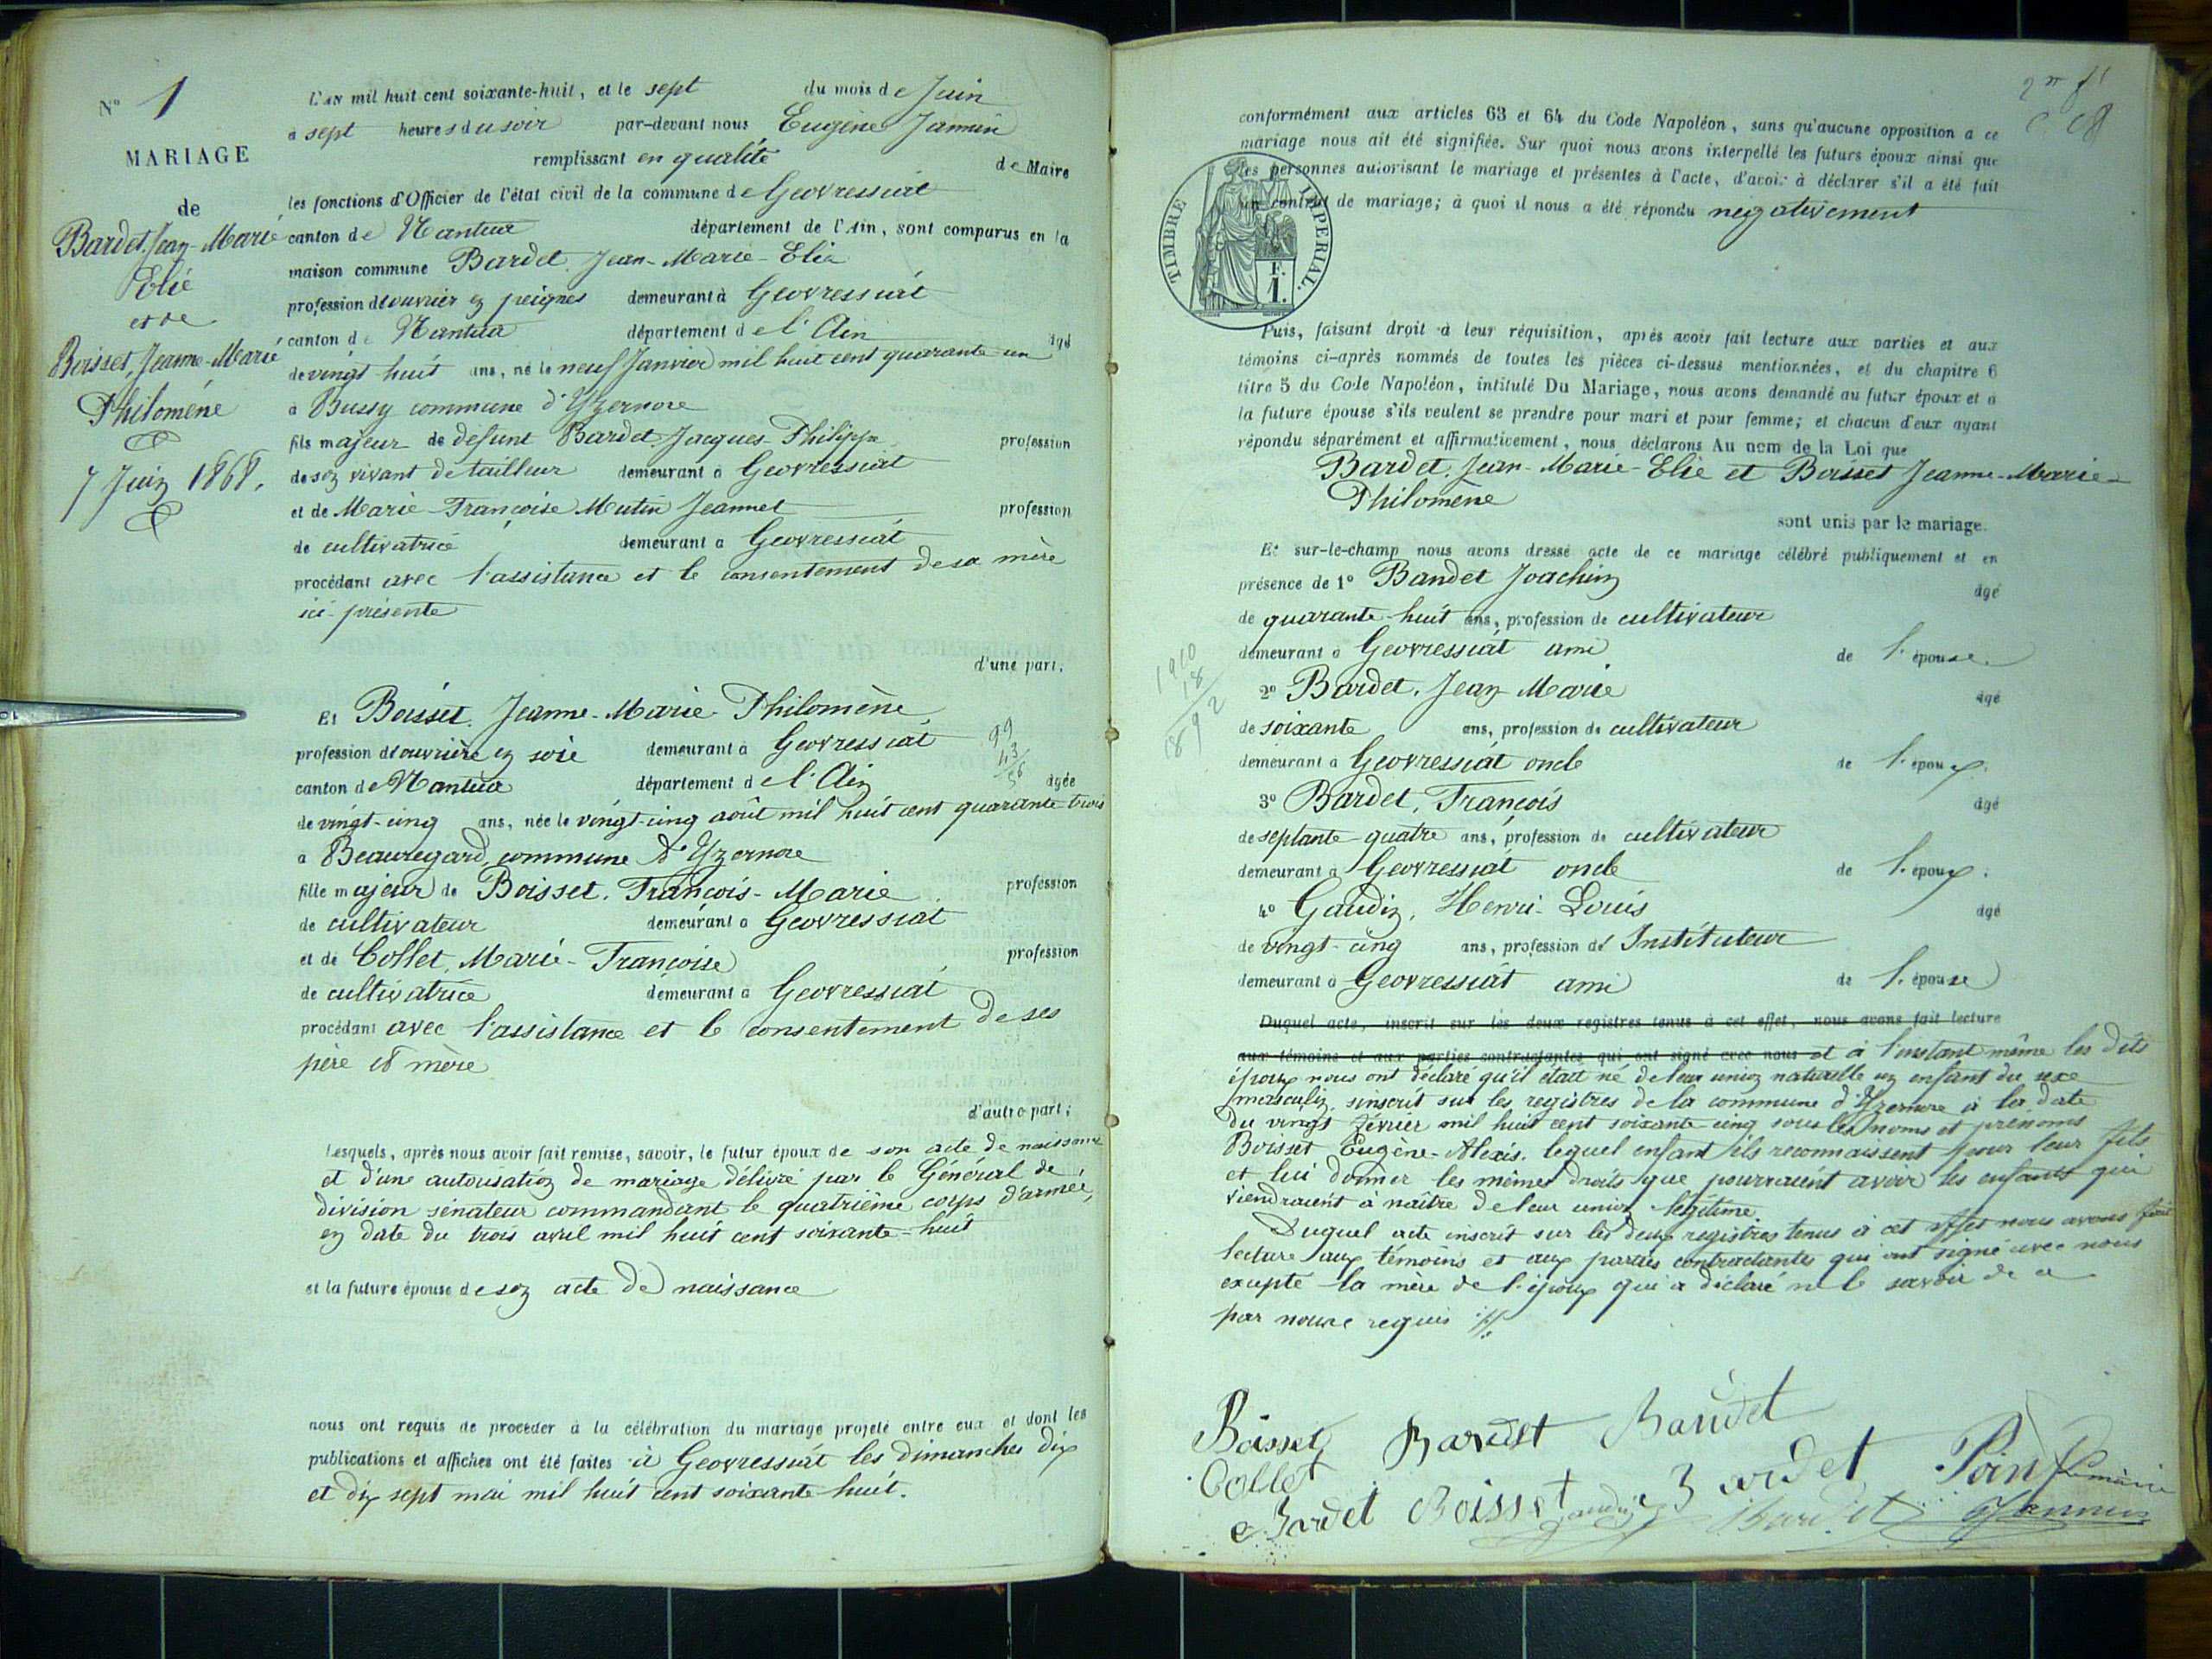 N° 1
MARIAGE
de
Bardet, Jean-Marie
Elie
et de
Boisset, Jeanne-Marie
Philomène
7 Juin 1868.
L'an mil huit cent soixante-huit, et le sept du mois de Juin
à sept heures du soir par-devant nous Eugène Jannin
remplissant en qualité de Maire
les fonctions d'Officier de l'état civil de la commune de Geovressiat
canton de Nantua département de l'Ain, sont comparus en la
maison commune Bardet, Jean-Marie-Elie
profession d'ouvrier en peignes demeurant à Geovressiat
canton de Nantua département de l'Ain âgé
de vingt huit ans, né le neuf Janvier mil huit cent quarante un
à Bussy commune d'Yzernore
fils majeur de défunt Bardet Jacques Philippe profession
de son vivant de tailleur demeurant à Geovressiat
et de Marie-Françoise Mutin Jeannet profession
de cultivatrice demeurant à Geovressiat
procédant avec l'assistance et le consentement de sa mère
ici présente
d'une part;
Et Boisset, Jeanne-Marie-Philomène
profession d'ouvrière en soie demeurant à Geovressiat
99
43
56
canton de Nantua département de l'Ain âgée
de vingt-cinq ans, née le vingt-cinq août mil huit cent quarante trois
à Beauregard, commune d'Yzernore
fille majeur de Boisset, François-Marie profession
de cultivateur demeurant à Geovressiat
et de Collet, Marie-Françoise profession
de cultivatrice demeurant à Geovressiat
procédant avec l'assistance et le consentement de ses
père et mère
d'autre part;
Lesquels, après nous avoir fait remise, savoir, le futur époux de son acte de naissance
et d'une autorisation de mariage délivré par le Général de
division sénateur commandant le quatrième corps d'armée,
en date du trois avril mil huit cent soixante-huit
et la future épouse de son acte de naissance
nous ont requis de procéder à la célébration du mariage projeté entre eux et dont les
publications et affiches ont été faites à Geovressiat les dimanches dix
et dix sept mai mil huit cent soixante-huit.
conformément aux articles 63 et 64 du Code Napoléon, sans qu'aucune opposition a ce
mariage nous ait été signifiée. Sur quoi nous avons interpellé les futurs époux ainsi que
les personnes autorisant le mariage et présentes à l'acte, d'avoir à déclarer s'il a été fait
un contrat de mariage; à quoi il nous a été répondu négativement
TIMBRE IMPERIAL.
F.
1.
Puis, faisant droit à leur réquisition, après avoir fait lecture aux parties et aux
témoins ci-après nommés de toutes les pièces ci-dessus mentionnées, et du chapitre 6
titre 5 du Code Napoléon, intitulé Du Mariage, nous avons demandé au futur époux et à
la future épouse s'ils veulent se prendre pour mari et pour femme; et chacun d'eux ayant
répondu séparément et affirmativement, nous déclarons Au nom de la Loi que
Bardet, Jean-Marie-Elie et Boisset Jeanne-Marie-
Philomène
sont unis par le mariage.
Et sur-le-champ nous avons dressé acte de ce mariage célébré publiquement et en
présence de 1° Bandet Joachim âgé
de quarante-huit ans, profession de cultivateur
demeurant à Geovressiat ami de l'épouse
1910
18
1892
2° Bardet, Jean Marie âgé
de soixante ans, profession de cultivateur
demeurant à Geovressiat oncle de l'époux.
3° Bardet, François âgé
de septante-quatre ans, profession de cultivateur
demeurant à Geovressiat oncle de l'époux.
4° Gaudin, Henri-Louis âgé
de vingt-cinq ans, profession d'Instituteur
demeurant à Geovressiat ami de l'épouse
Duquel acte, inscrit sur les deux registres tenus à cet effet, nous avons fait lecture
aux témoins et aux parties contractantes qui ont signé avec nous et à l'instant même les dits
époux nous ont déclaré qu'il était né de leur union naturelle un enfant du sexe
masculin, sinscrit sur les registres de la commune d'Yzernore à la date
du vingt février mil huit cent soixante cinq sous les noms et prénoms
Boisset Eugène-Alexis. lequel enfant ils reconnaissent pour leur fils
et lui donner les mêmes droits que pourraient avoir les enfants qui
viendraient à naître de leur union légitime.
Duquel acte inscrit sur les deux registres tenus à cet effet nous avons fait
lecture aux témoins et aux parties contractantes qui ont signé avec nous
excepté la mère de l'époux qui a déclaré ne le savoir de ce
par nous requis
Boisset Bardet Bandet
Collet
Bardet Boisset Gaudin Bardet
Bardet Jannin